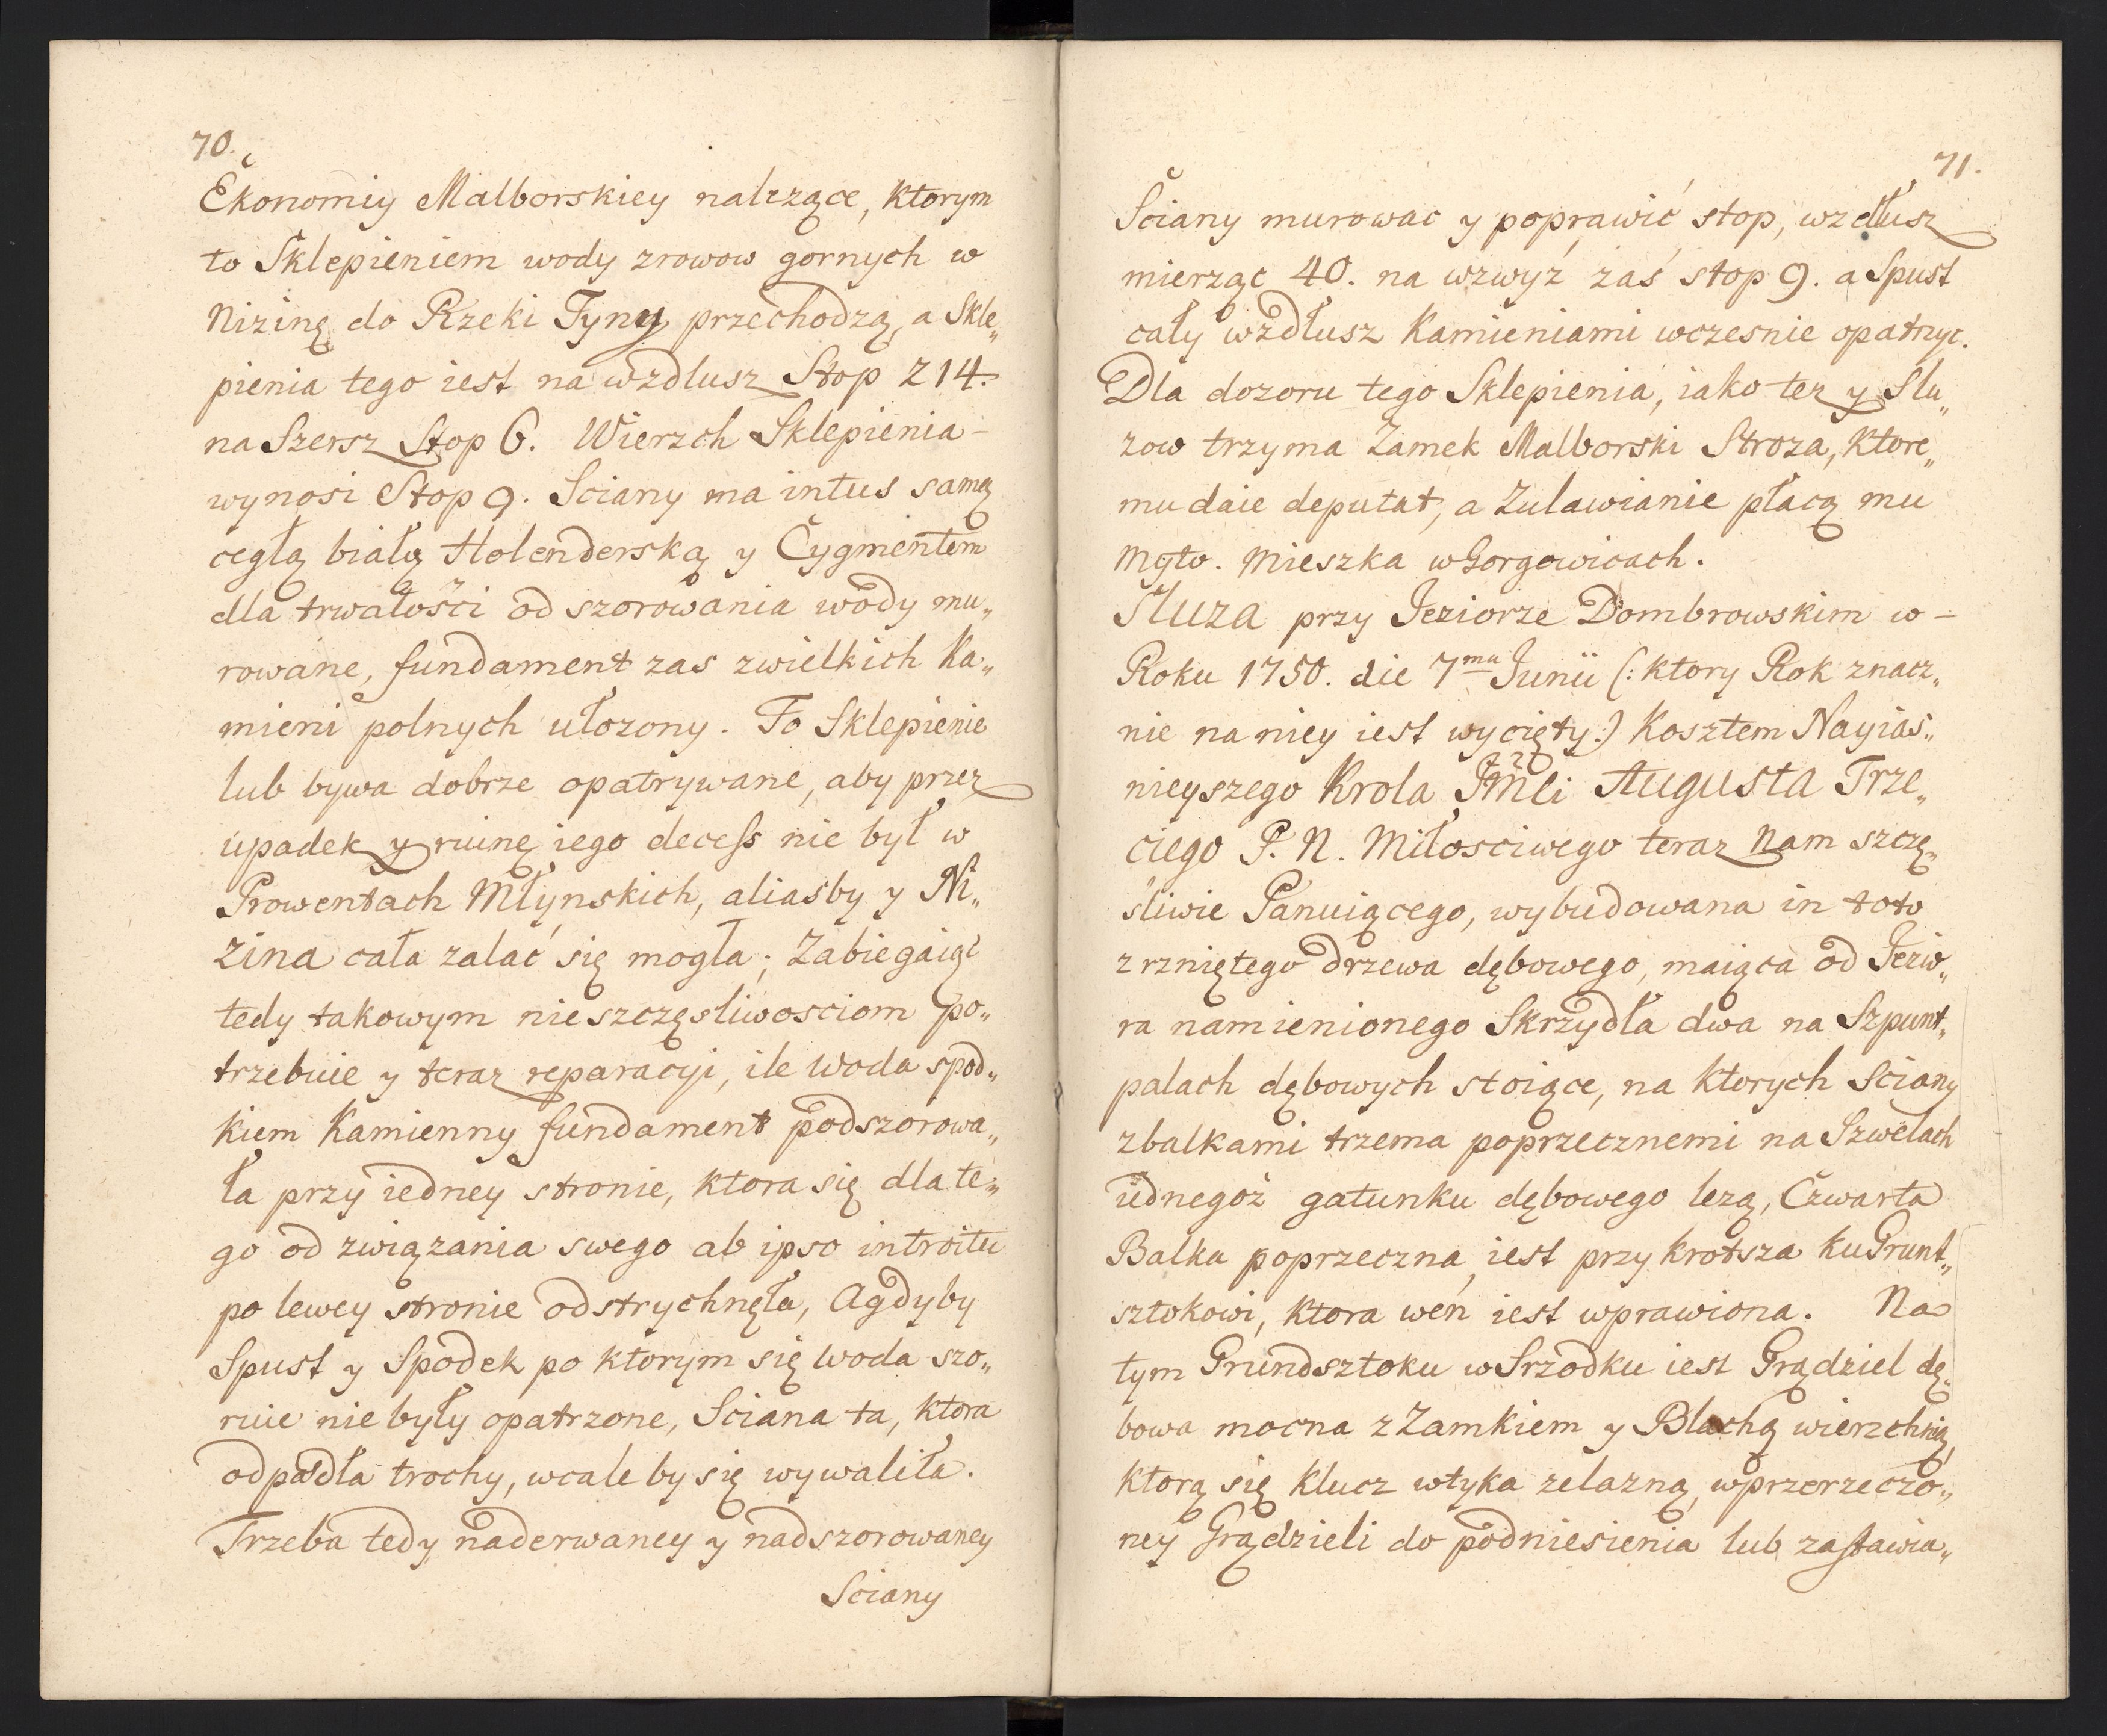 70.
Ekonomiy Malborskiey nalezące, ktorym
to Sklepieniem wody zrowow gornych w
Nizinę do Rzeki Tyny przechodzą, a Skle„
pienia tego iest na wzdlusz Stop 214.
na Szersz Stop 6. Wierzch Sklepienia –
wynosi Stop 9. Sciany ma intus samą
cegłą białą Holenderską y Cygmentem
dla trwałości od szorowania wody mu„
rowane, fundament zas zwielkich Ka„
mieni polnych ułozony. To Sklepienie
lub bywa dobrze opatrywane, aby przez
upadek y ruinę iego decess nie był w
Prowentach Młynskich, aliasby y Ni„
zina cała zalać się mogła; Zabiegaiąc
tedy takowym nieszczęsliwosciom po„
trzebuie y teraz reparacyi, ile woda spod„
kiem Kamienny fundament podszorowa„
ła przy iedney stronie, ktora się dla te„
go od związania swego ab ipso introitu
po lewey stronie odstrychnęła, Agdyby
Spust y Spodek po ktorym się woda szo„
ruie nie były opatrzone, Sciana ta, ktora
odpadła trochy, wcale by się wywaliła.
Trzeba tedy naderwaney y nadszorowaney
Sciany
71.
Sciany murowac y poprawić stop, wzdłusz
mierząc 40. na wzwyż zaś stop 9. a Spust
cały wzdłusz Kamieniami wczesnie opatrzyc.
Dla dozoru tego Sklepienia, iako tez y Slu„
zow trzyma Zamek Malborski Stroza, ktore„
mu daie deputat, a Zulawianie płacą mu
Myto. Mieszka w Gorgowicach.
Sluza przy Jeziorze Dombrowskim w –
Roku 1750. die 7ma Junii (: ktory Rok znacz„
nie na niey iest wycięty:) Kosztem Nayias„
nieyszego Krola JMCi Augusta Trze„
ciego P. N. Miłosciwego teraz Nam szczę„
śliwie Panuiącego, wybudowana in toto
z rzniętego drzewa dębowego, maiąca od Jezio„
ra namienionego Skrzydła dwa na Szpunt„
palach dębowych stoiące, na ktorych Sciany
zbalkami trzema poprzecznemi na Szwelach
iednegoż gatunku dębowego lezą, Czwarta
Balka poprzeczna, iest przykrotsza ku Grunt„
sztokowi, ktora weń iest wprawiona. Na
tym Grundsztoku w Srzodku iest Grądziel dę„
bowa mocna z Zamkiem y Blachą wierzchnią,
ktorą się klucz wtyka zelazną, wprzerzeczo„
ney Grądzieli do podniesienia lub zastawia„